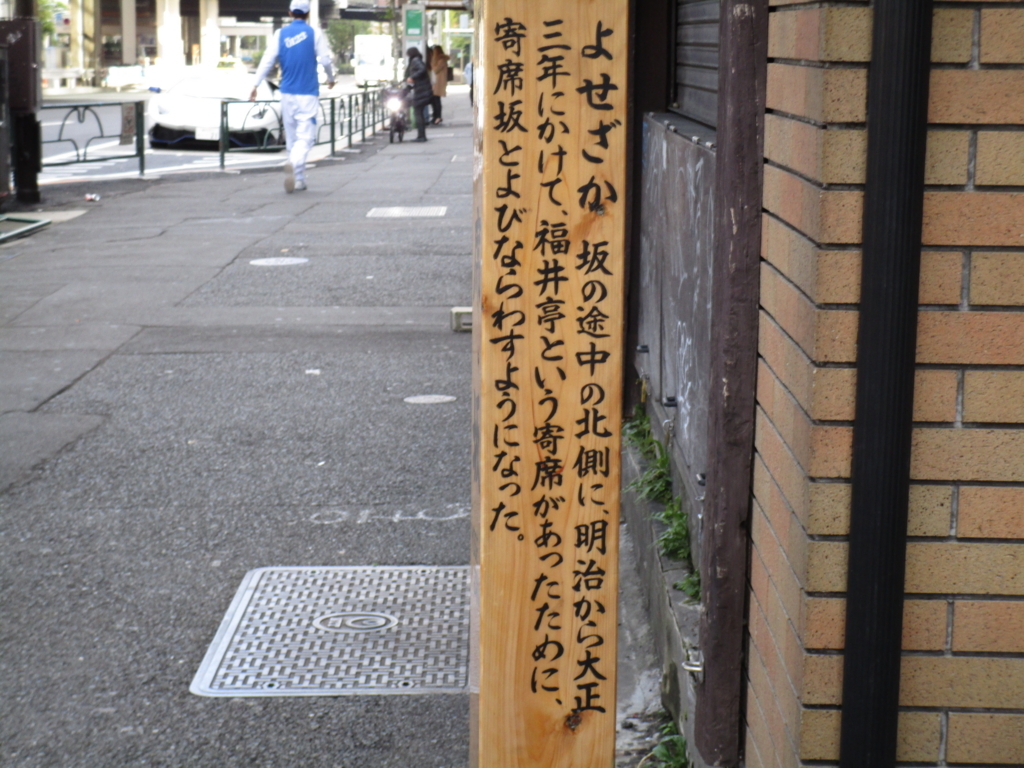 よせざか 坂の途中の北側に、明治から大正
三年にかけて、福井亭という寄席があったために、
寄席坂とよびならわすようになった。